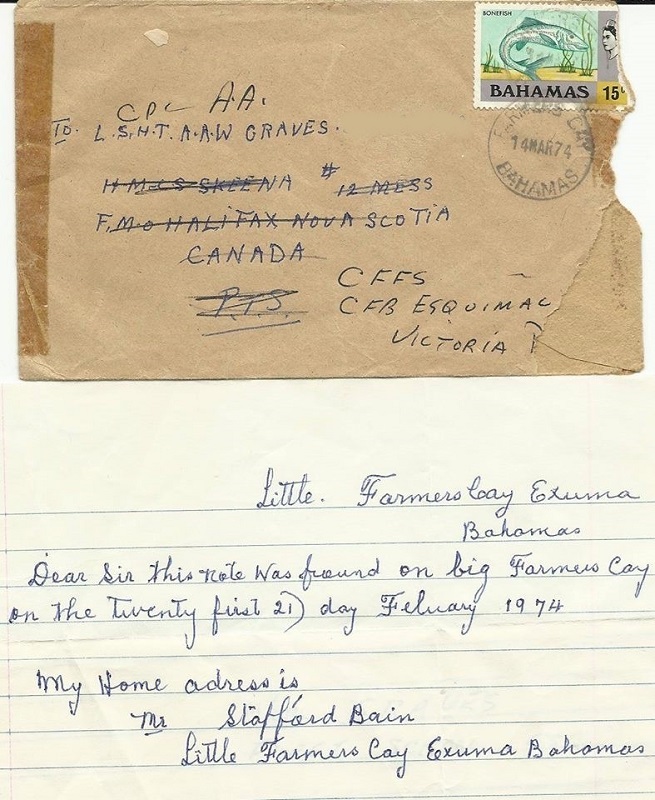 BONEFISH
BAHAMAS 15
14 MAR 74
BAHAMAS
CPL A.A.
TO. L.S.H.T. A.A.W GRAVES.
H.M.C.S SKEENA # 12 MESS
F.M.O HALIFAX NOVA SCOTIA
CANADA
CFFS
CFB ESQUIMAL
VICTORIA
Little. Farmers Cay Exuma
Bahamas
Dear Sir this note was fround on big Farmers Cay
on the Twenty first 21) day Feluary 1974
My Home adress is
Mr Stafford Bain
Little Farmers Cay Exuma Bahamas